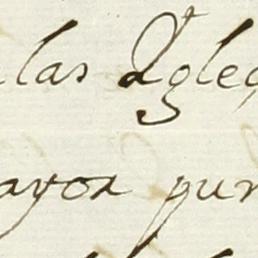 las Ygle
ayor pur